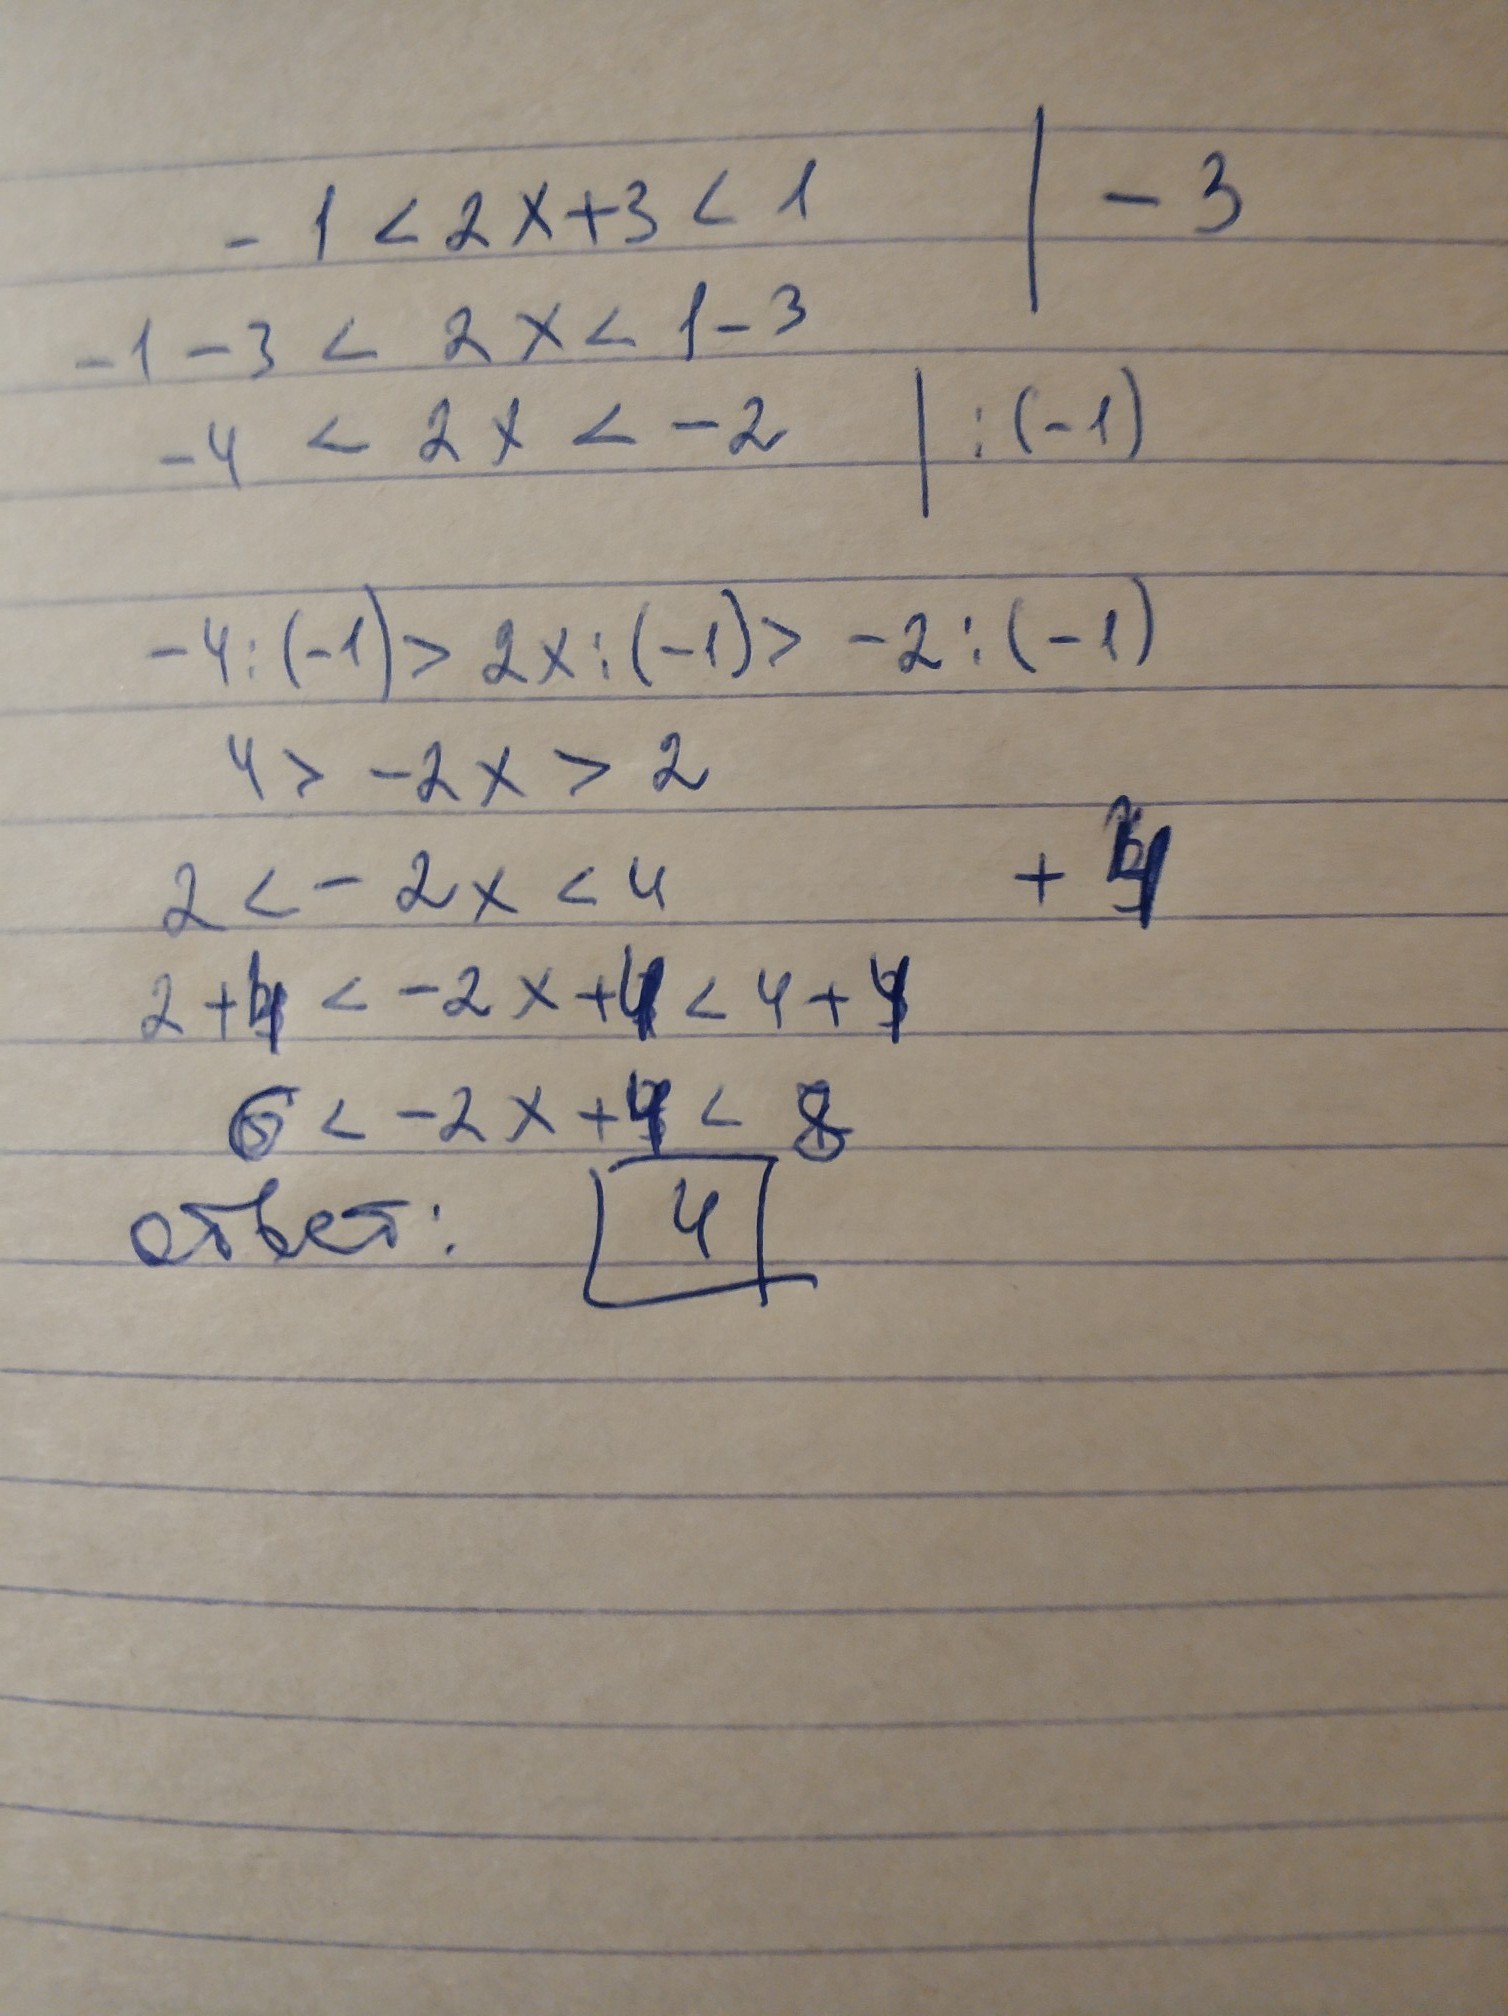 -1 < 2x+3 < 1 | -3
-1-3 < 2x < 1-3
-4 < 2x < -2 | :(-1)
-4:(-1) > 2x:(-1) > -2:(-1)
4 > -2x > 2
2 < -2x < 4 + 4
2+4 < -2x+4 < 4+4
6 < -2x+4 < 8
ответ: 4